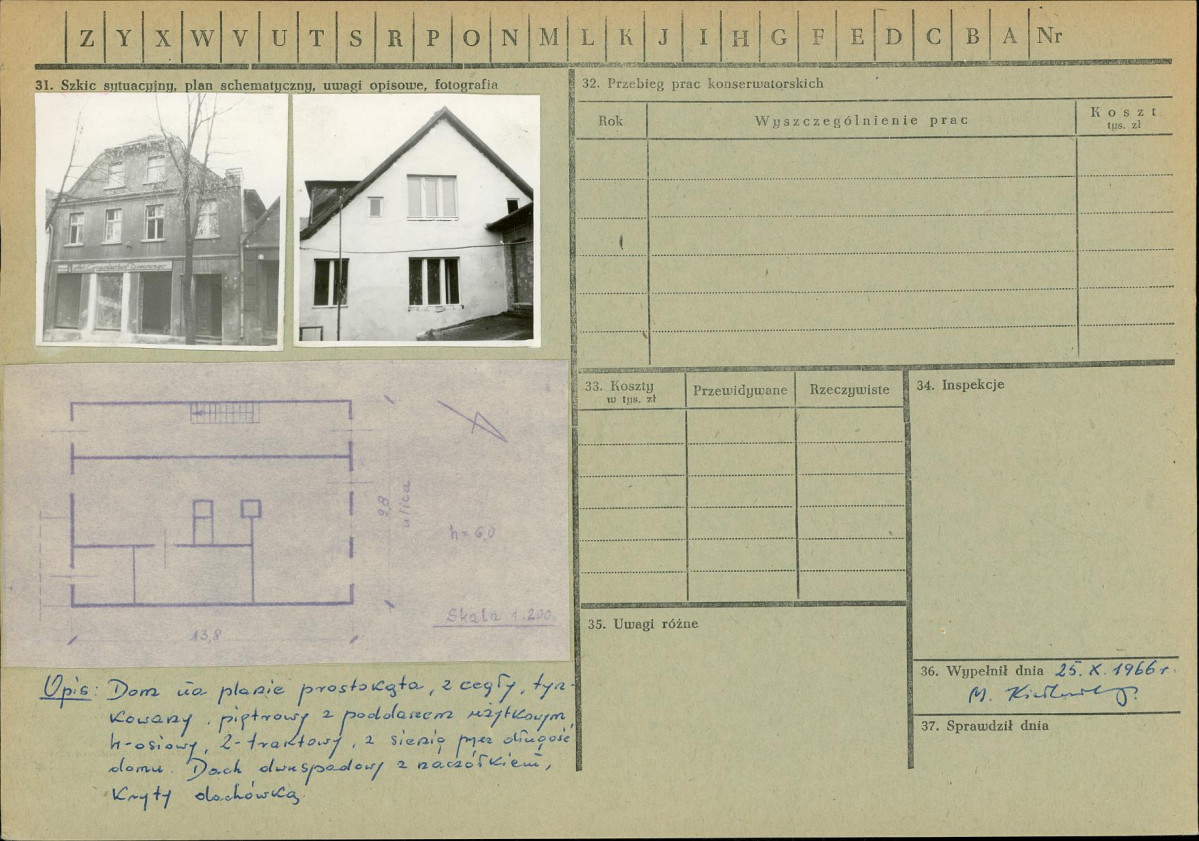 Z Y X W V U T S R P O N M L K J I H G F E D C B A Nr
31. Szkic sytuacyjny, plan schematyczny, uwagi opisowe, fotografia
9,8
ulica
h = 6,0
Skala 1:200
13,8
Opis: Dom na planie prostokąta, z cegły, tyn-
kowany, piętrowy z poddaszem użytkowym,
4-osiowy, 2-traktowy, z sienią przez długość
domu. Dach dwuspadowy z naczółkiem,
kryty dachówką.
32. Przebieg prac konserwatorskich
Rok Wyszczególnienie prac Koszt
tys. zł
33. Koszty
w tys. zł
Przewidywane Rzeczywiste
34. Inspekcje
35. Uwagi różne
36. Wypełnił dnia 25.X.1966 r.
M.
37. Sprawdził dnia